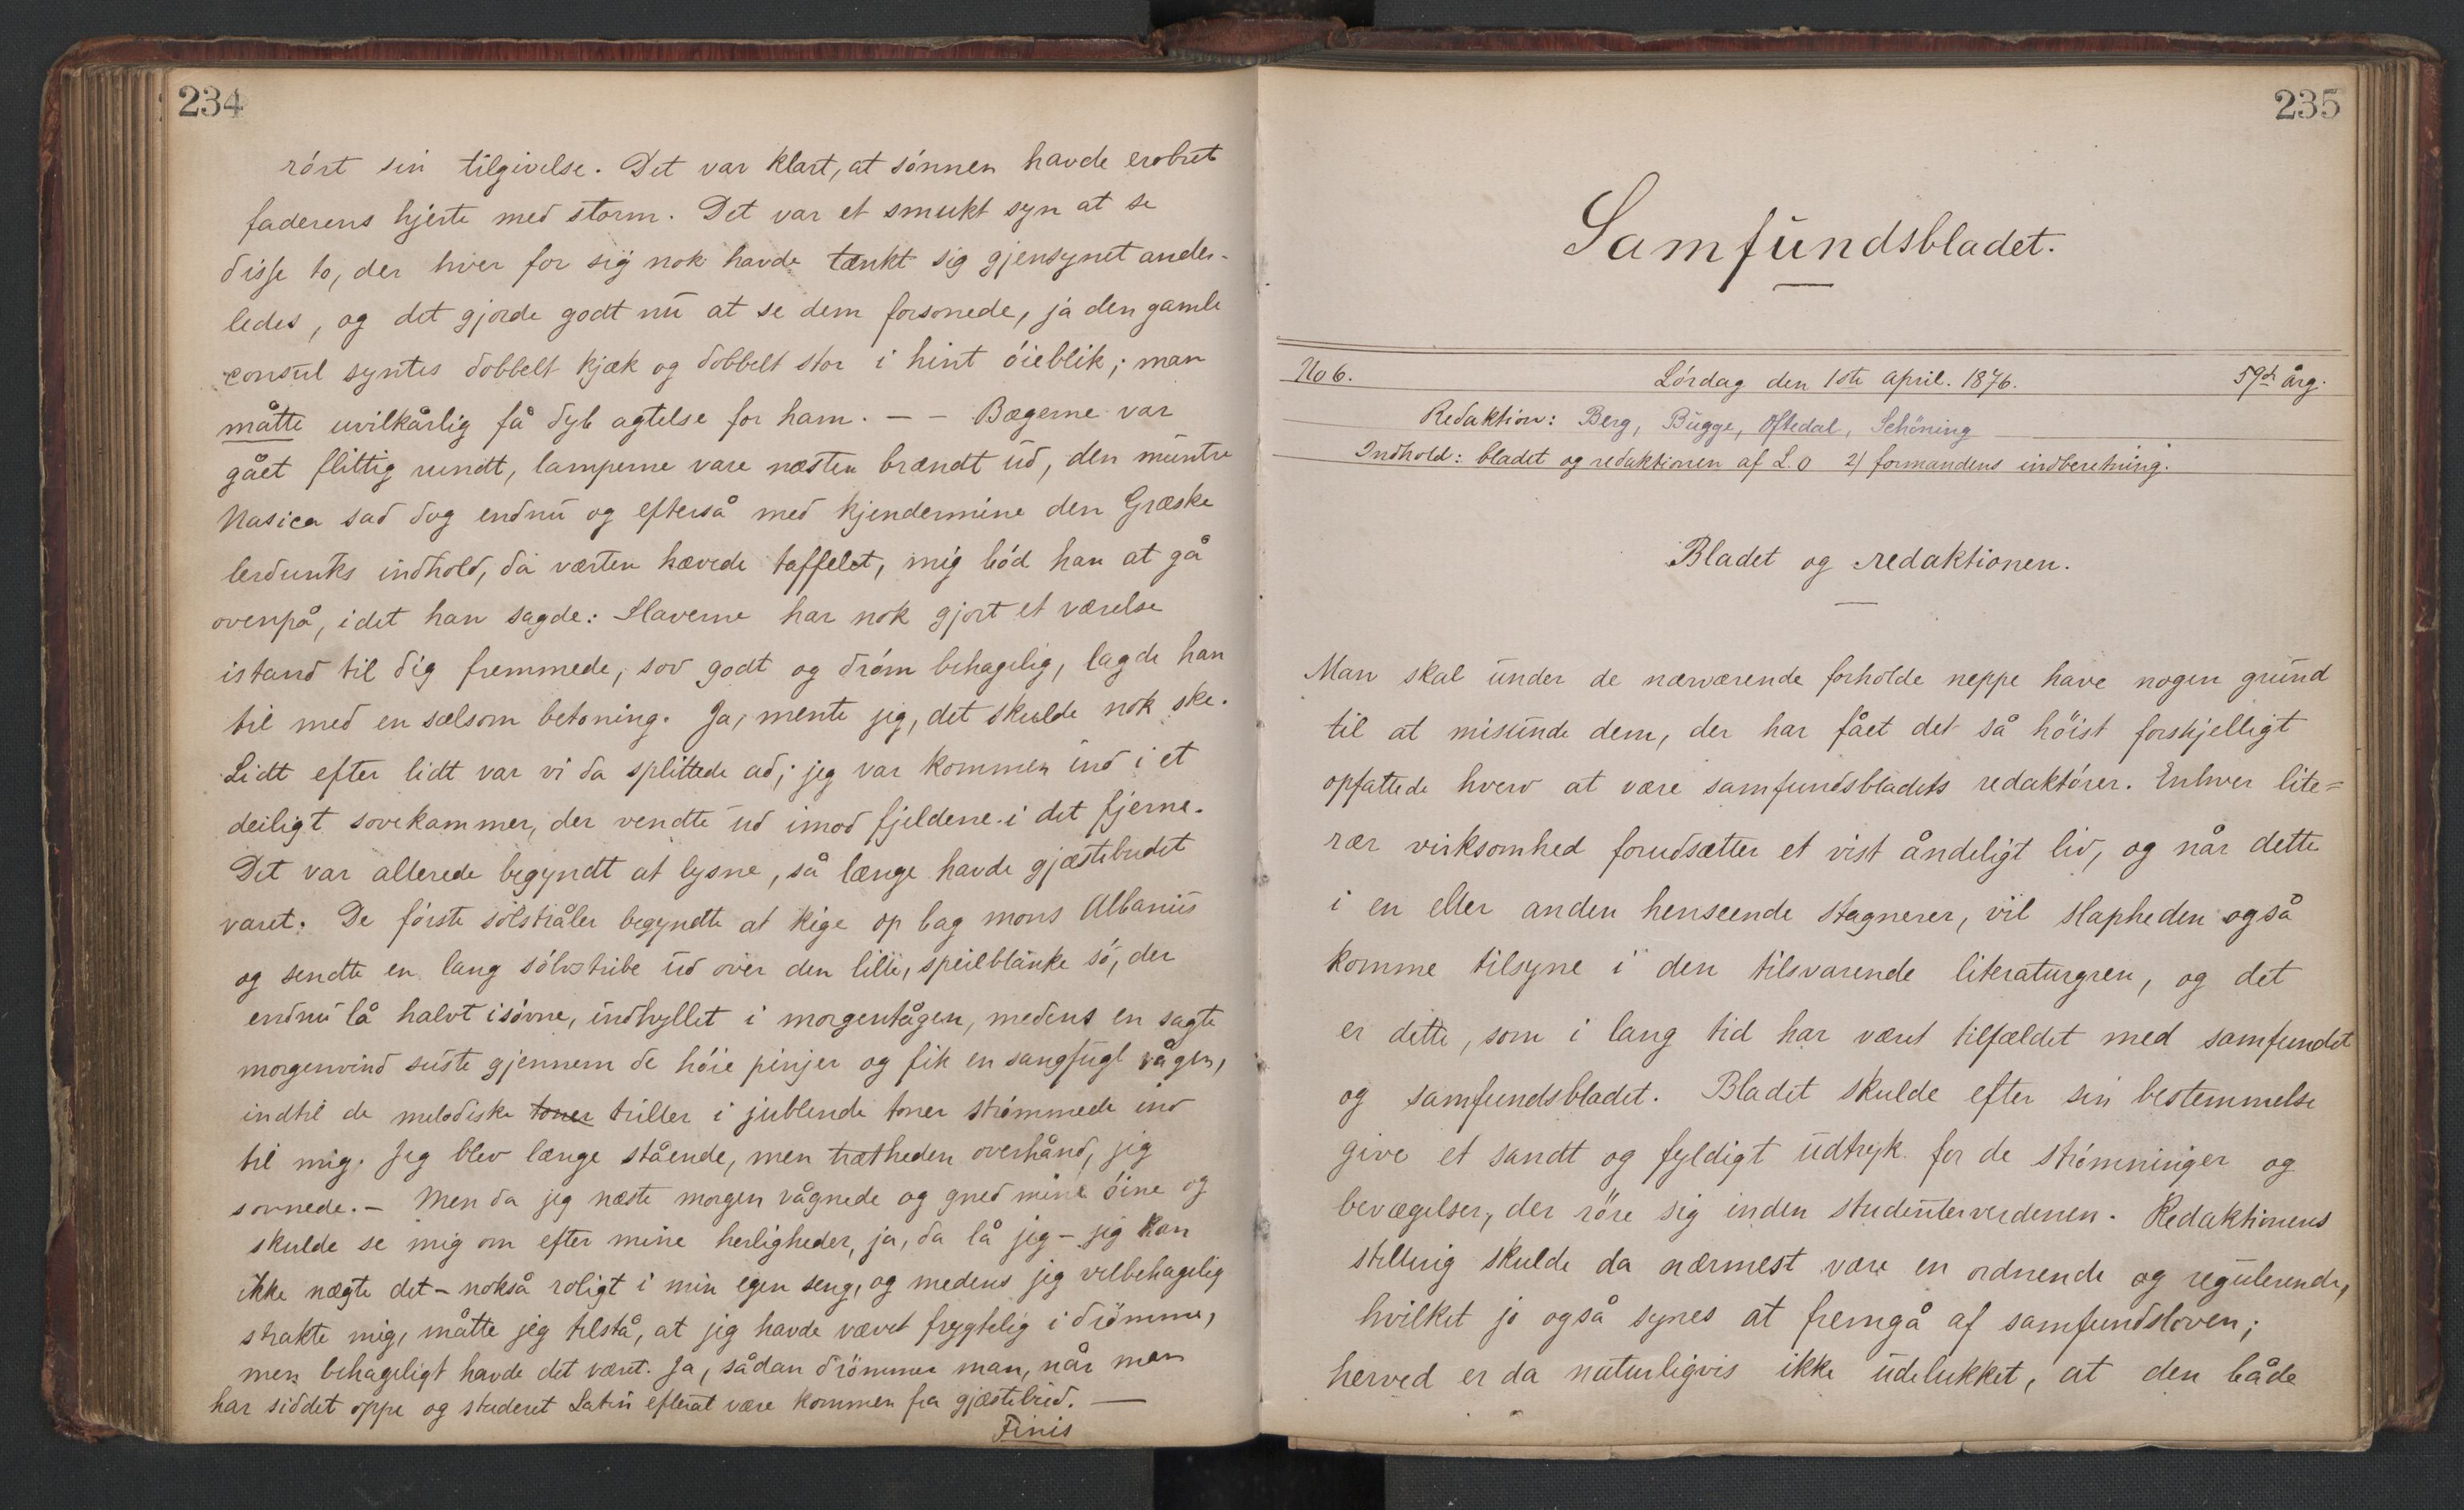 234
rört sin tilgivelse. Det var klart, at sönnen havde erobret
faderens hjerte med storm. Det var et smukt syn at se
disse to, der hver for sig nok havde tænkt sig gjensynet ander-
ledes, og det gjorde godt nu at se dem forsonede, ja den gamle
consul syntes dobbelt kjæk og dobbelt stor i hint öieblik; man
måtte uvilkårlig få dyb agtelse for ham. – – Bægerne var
gået flittig rundt, lamperne vare næsten brændt ud, den muntre
Nasica sad dog endnu og efterså med kjendermine den Græske
lerdunks indhold, da værten hævede taffelet, mig bód han at gå
ovenpå, idet han sagde: Slaverne har nok gjort et værelse
istand til dig fremmede, sov godt og dróm behagelig, lagde han
til med en sælsom betoning. Ja, mente jeg, det skulde nok ske.
Lidt efter lidt var vi da splittede ad; jeg var kommen ind i et
deiligt sovekammer, der vendte ud imod fjeldene i det fjerne.
Det var allerede begyndt at lysne, så længe havde gjæstebudet
varet. De förste solstråler begyndte at kige op bag mons Albanus
og sendte en lang sölvstribe ud over den lille, speilblanke só, der
endnu lå halvt isóvne, indhyllet i morgentågen, medens en sagte
morgenvind suste gjennem de hóie pinjer og fik en sangfugl vågen,
indtil de melodiske toner triller i jublende toner strómmede ind
til mig. Jeg blev længe stående, men trætheden overhånd, jeg
sovnede. – Men da jeg næste morgen vågnede og gned mine óine og
skulde se mig om efter mine herligheder, ja, da lå jeg – jeg kan
ikke nægte det – nokså roligt i min egen seng, og medens jeg velbehagelig
strakte mig, måtte jeg tilstå, at jeg havde været frygtelig i drömme,
men behageligt havde det været. Ja, sådan drömmer man, når man
har siddet oppe og studeret Latin efterat være kommen fra gjæstebud. —
Finis
235
Samfundsbladet.
No 6. Lórdag den 1ste April. 1876. 59de årg.
Redaktion: Berg, Bugge, Oftedal, Schöning
Indhold: bladet og redaktionen af L. O 2) formandens indberetning.
Bladet og redaktionen.
Man skal under de nærværende forholde neppe have nogen grund
til at misunde dem, der har fået det så höist forskjelligt
opfattede hverv at være samfundsbladets redaktórer. Enhver lite=
rær virksomhed forudsætter et vist åndeligt liv, og når dette
i en eller anden henseende stagnerer, vil slapheden også
komme tilsyne i den tilsvarende literaturgren, og det
er dette, som i lang tid har været tilfældet med samfundet
og samfundsbladet. Bladet skulde efter sin bestemmelse
give et sandt og fyldigt udtryk for de strómninger og
bevægelser, der röre sig inden studenterverdenen. Redaktionens
stilling skulde da nærmest være en ordnende og regulerende,
hvilket jo også synes at fremgå af samfundsloven;
herved er da naturligvis ikke udelukket, at den både